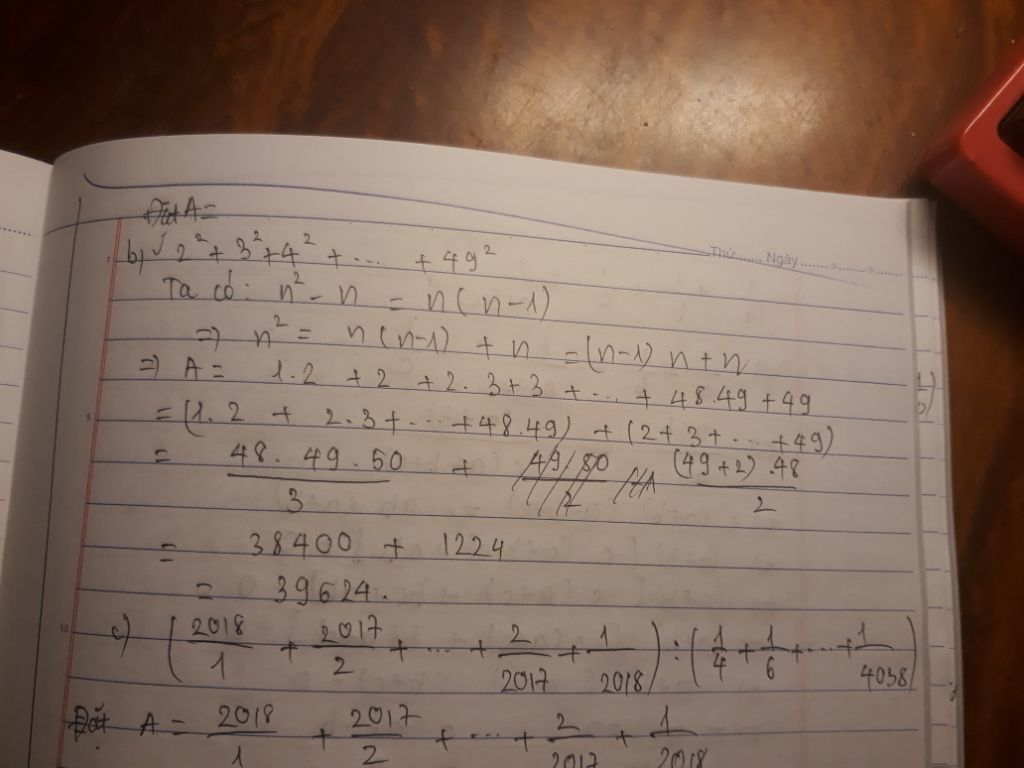 Đặt A=
Thứ ..... Ngày ..... 
b) 2² + 3² + 4² + ... + 49²
Ta có: n² - n = n(n-1)
=> n² = n(n-1) + n = (n-1) n + n
=> A = 1.2 + 2 + 2.3 + 3 + ... + 48.49 + 49
= (1.2 + 2.3 + ... + 48.49) + (2 + 3 + ... + 49)
= 48.49.50/3 + (49+2).48/2
= 38400 + 1224
= 39624.
c) (2018/1 + 2017/2 + ... + 2/2017 + 1/2018) : (1/4 + 1/6 + ... + 1/4038)
Đặt A = 2018/1 + 2017/2 + ... + 2/2017 + 1/2018